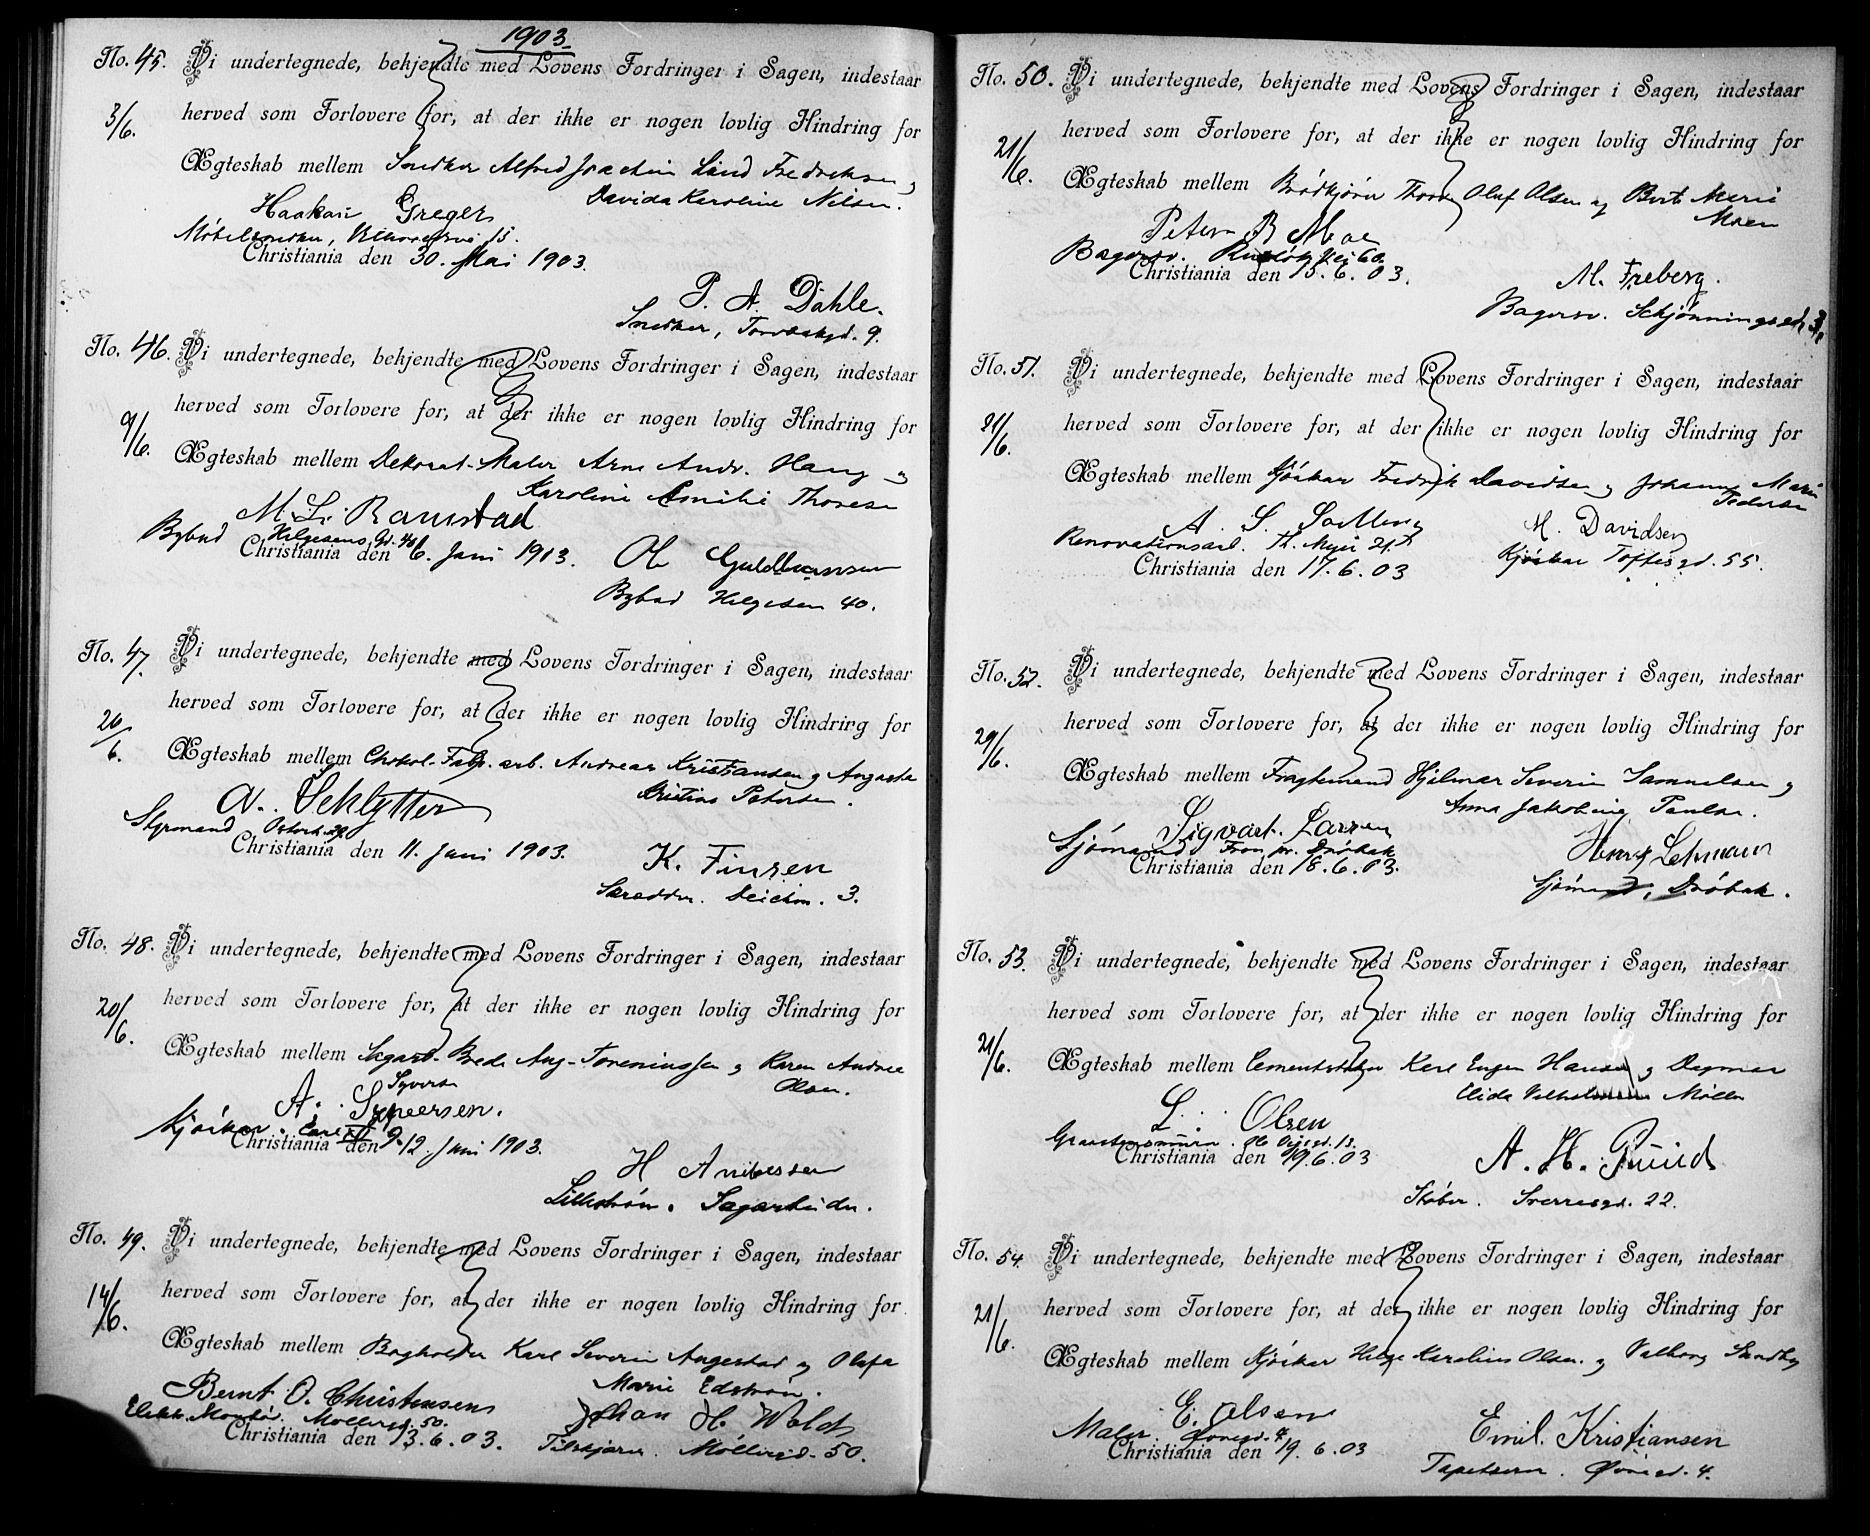 1903.
No. 45. Vi undertegnede, bekjendte med Lovens Fordringer i Sagen, indestaar
3/6. herved som Forlovere for, at der ikke er nogen lovlig Hindring for
Ægteskab mellem Snedker Alfred Joachim Lund Fredriksen &
Davida Karoline Nilsen.
Haakon Greger
Møbelsnedker, 15.
Christiania den 30. Mai 1903.
P. A. Dahle.
Snedker, 9.
No. 46. Vi undertegnede, bekjendte med Lovens Fordringer i Sagen, indestaar
9/6. herved som Forlovere for, at der ikke er nogen lovlig Hindring for
Ægteskab mellem Dekorat. Maler Arne Andr. Haug &
Karoline Emilie Thoresen
M. L. Ramstad
Bybud Helgesens Gd. 40
Christiania den 6. Juni 1903.
Ole Guldbransen
Bybud Helgesen 40.
No. 47. Vi undertegnede, bekjendte med Lovens Fordringer i Sagen, indestaar
20/6. herved som Forlovere for, at der ikke er nogen lovlig Hindring for
Ægteskab mellem Chokol. Fabr. arb. Andreas Kristiansen & Augusta
Kristine Petersen.
A. Schlytter
Styrmand
Christiania den 11. Juni 1903.
K. Finsen
Skrædder. Deichm. 3.
No. 48. Vi undertegnede, bekjendte med Lovens Fordringer i Sagen, indestaar
20/6. herved som Forlovere for, at der ikke er nogen lovlig Hindring for
Ægteskab mellem Sagarb. Brede Aug. & Karen Andrea
Olsen.
Syversen
A. Syversen.
Kjøsker. 9.
Christiania den 12. Juni 1903.
H Andersen
Lillestrøm. Sagarbeider.
No. 49. Vi undertegnede, bekjendte med Lovens Fordringer i Sagen, indestaar
14/6. herved som Forlovere for, at der ikke er nogen lovlig Hindring for
Ægteskab mellem Bogholder Karl Severin Angestad & Olafa
Marie Edstrøm.
Bernt O. Christensen
Elektr. Montør. Møllergd. 50.
Christiania den 13.6.03.
Johan H. Wold
Møllergd. 50.
No. 50. Vi undertegnede, bekjendte med Lovens Fordringer i Sagen, indestaar
21/6. herved som Forlovere for, at der ikke er nogen lovlig Hindring for
Ægteskab mellem Brødkjører Oluf Olsen og Berte Marie
Moen
Peter B Moe
Bagersv. 60.
Christiania den 15.6.03.
M. Freberg.
Bagersv. Schjønningsgd. 3.
No. 51. Vi undertegnede, bekjendte med Lovens Fordringer i Sagen, indestaar
21/6. herved som Forlovere for, at der ikke er nogen lovlig Hindring for
Ægteskab mellem Kjøsker Fredrik Davidsen & Johanne Marie
Pedersen
A. S.
Renovationsarb. Th. Meyer 21
Christiania den 17.6.03
H. Davidsen
Kjøsker Toftesgd. 55.
No. 52. Vi undertegnede, bekjendte med Lovens Fordringer i Sagen, indestaar
29/6. herved som Forlovere for, at der ikke er nogen lovlig Hindring for
Ægteskab mellem Fragtemand Hjalmar Severin Samuelsen &
Anna Jakobine Paulsen.
Sigvart. Larsen
Sjømand, Fron pr. Drøbak
Christiania den 18.6.03.
Henry Lehmann
Sjømand, Drøbak.
No. 53. Vi undertegnede, bekjendte med Lovens Fordringer i Sagen, indestaar
21/6. herved som Forlovere for, at der ikke er nogen lovlig Hindring for
Ægteskab mellem Cementstøber Karl Eugen Hansen & Dagmar
Elida Vilhelmine Møller
L. Olsen
13.
Christiania den 19.6.03
A. H. Ruud
Støber. Sverresgd. 22.
No. 54. Vi undertegnede, bekjendte med Lovens Fordringer i Sagen, indestaar
21/6. herved som Forlovere for, at der ikke er nogen lovlig Hindring for
Ægteskab mellem Kjøsker Helge Karelius Olsen. & Valborg Sandby
E. Olsen
Maler. 4
Christiania den 19.6.03
Emil. Kristiansen
Tapetserer. 4.